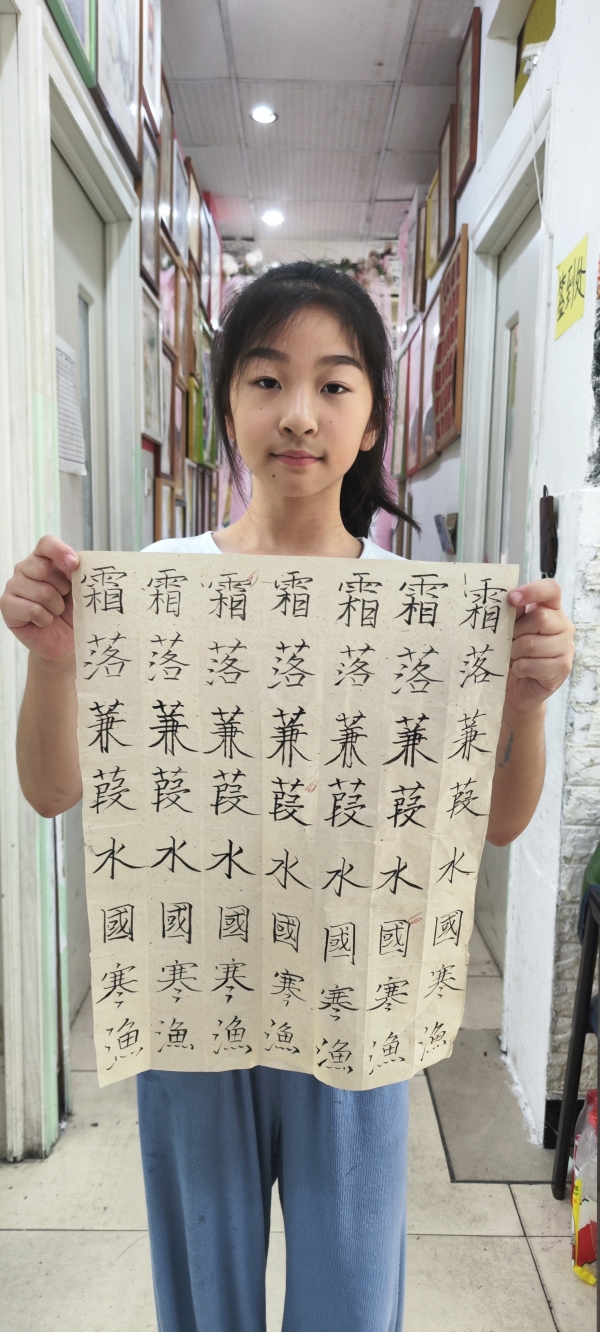 霜落蒹葭水國寒漁
霜落蒹葭水國寒漁
霜落蒹葭水國寒漁
霜落蒹葭水國寒漁
霜落蒹葭水國寒漁
霜落蒹葭水國寒漁
霜落蒹葭水國寒漁
签到处